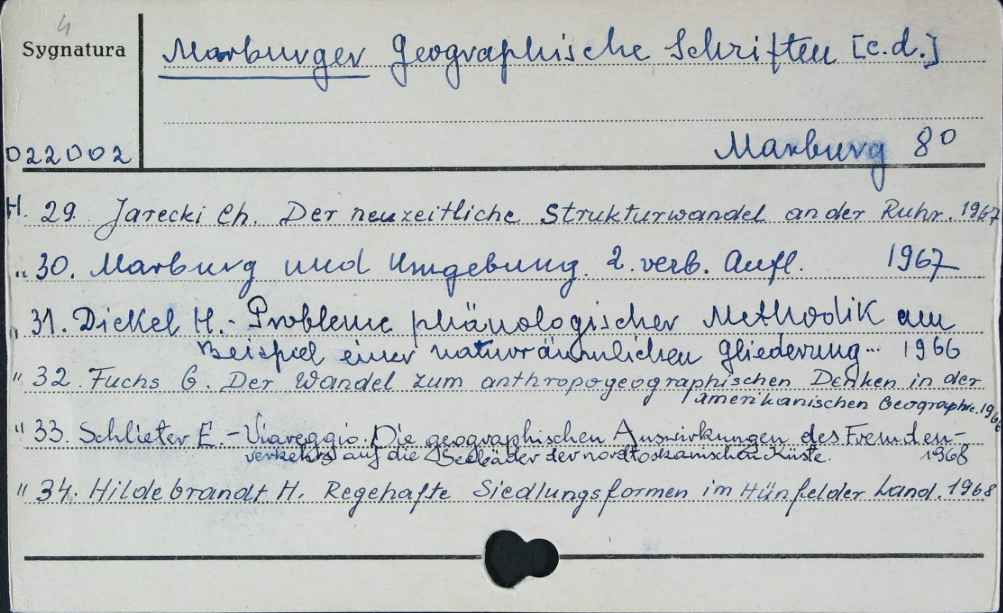 4
Sygnatura
Marburger Geographische Schriften [c.d.]
022002
Marburg 8⁰
H. 29. Jarecki Ch. Der neuzeitliche Strukturwandel an der Ruhr. 1967
" 30. Marburg und Umgebung. 2. verb. Aufl. 1967
" 31. Dickel H. - Probleme phänologischer Methodik am
Beispiel einer naturräumlichen Gliederung... 1966
" 32. Fuchs G. Der Wandel zum anthropogeographischen Denken in der
amerikanischen Geographie. 1966
" 33. Schlieter E. - Viareggio. Die geographischen Auswirkungen des Fremden-
verkehrs auf die Seebäder der nordtoskanischen Küste. 1968
" 34. Hildebrandt H. Regehafte Siedlungsformen im Hünfelder Land. 1968